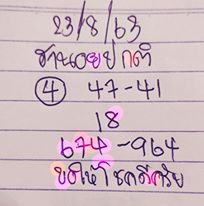 23/8/63
ชานเอยปกติ
④ 47-41
18
674-964
ขอให้โชคดีครับ